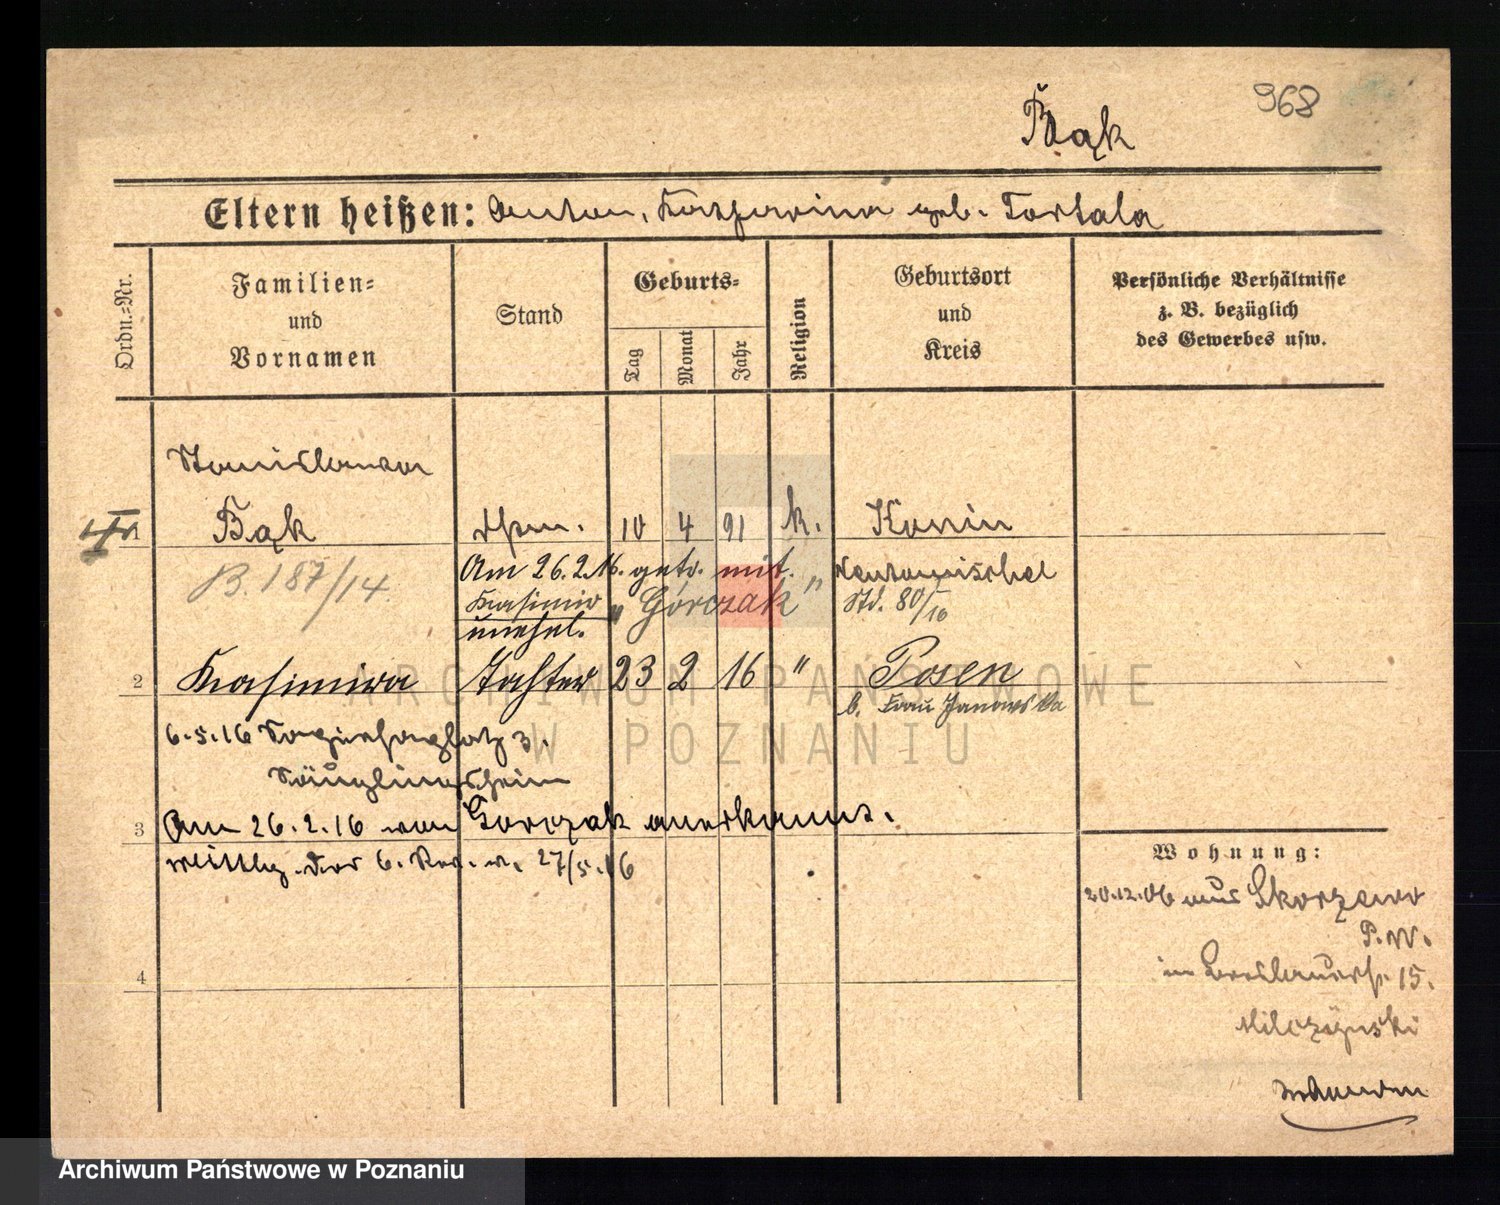 968
Bąk
Eltern heißen: Anton, Katharina geb. Tortala
Ordn.-Nr.
Familien-
und
Vornamen
Stand
Geburts-
Tag
Monat
Jahr
Religion
Geburtsort
und
Kreis
Persönliche Verhältnisse
z. B. bezüglich
des Gewerbes usw.
Stanislawa
1 Bąk 10 4 91 k. Konin
B. 187/14
Am 26.2.16. getr. mit.
Kasimir "Górczak"
Std. 80/16
unehel.
2 Kasimira Tochter 23 2 16 " Posen
b. Frau Janowska
6.5.16 3.
Säuglingsheim
3 Am 26.2.16 von Gorczak anerkannt.
27/5.16
4
Wohnung:
20.12.06 aus Skorzewo
P.W.
in Breslauerstr. 15.
Milczyński
ARCHIWUM PAŃSTWOWE
W POZNANIU
Archiwum Państwowe w Poznaniu